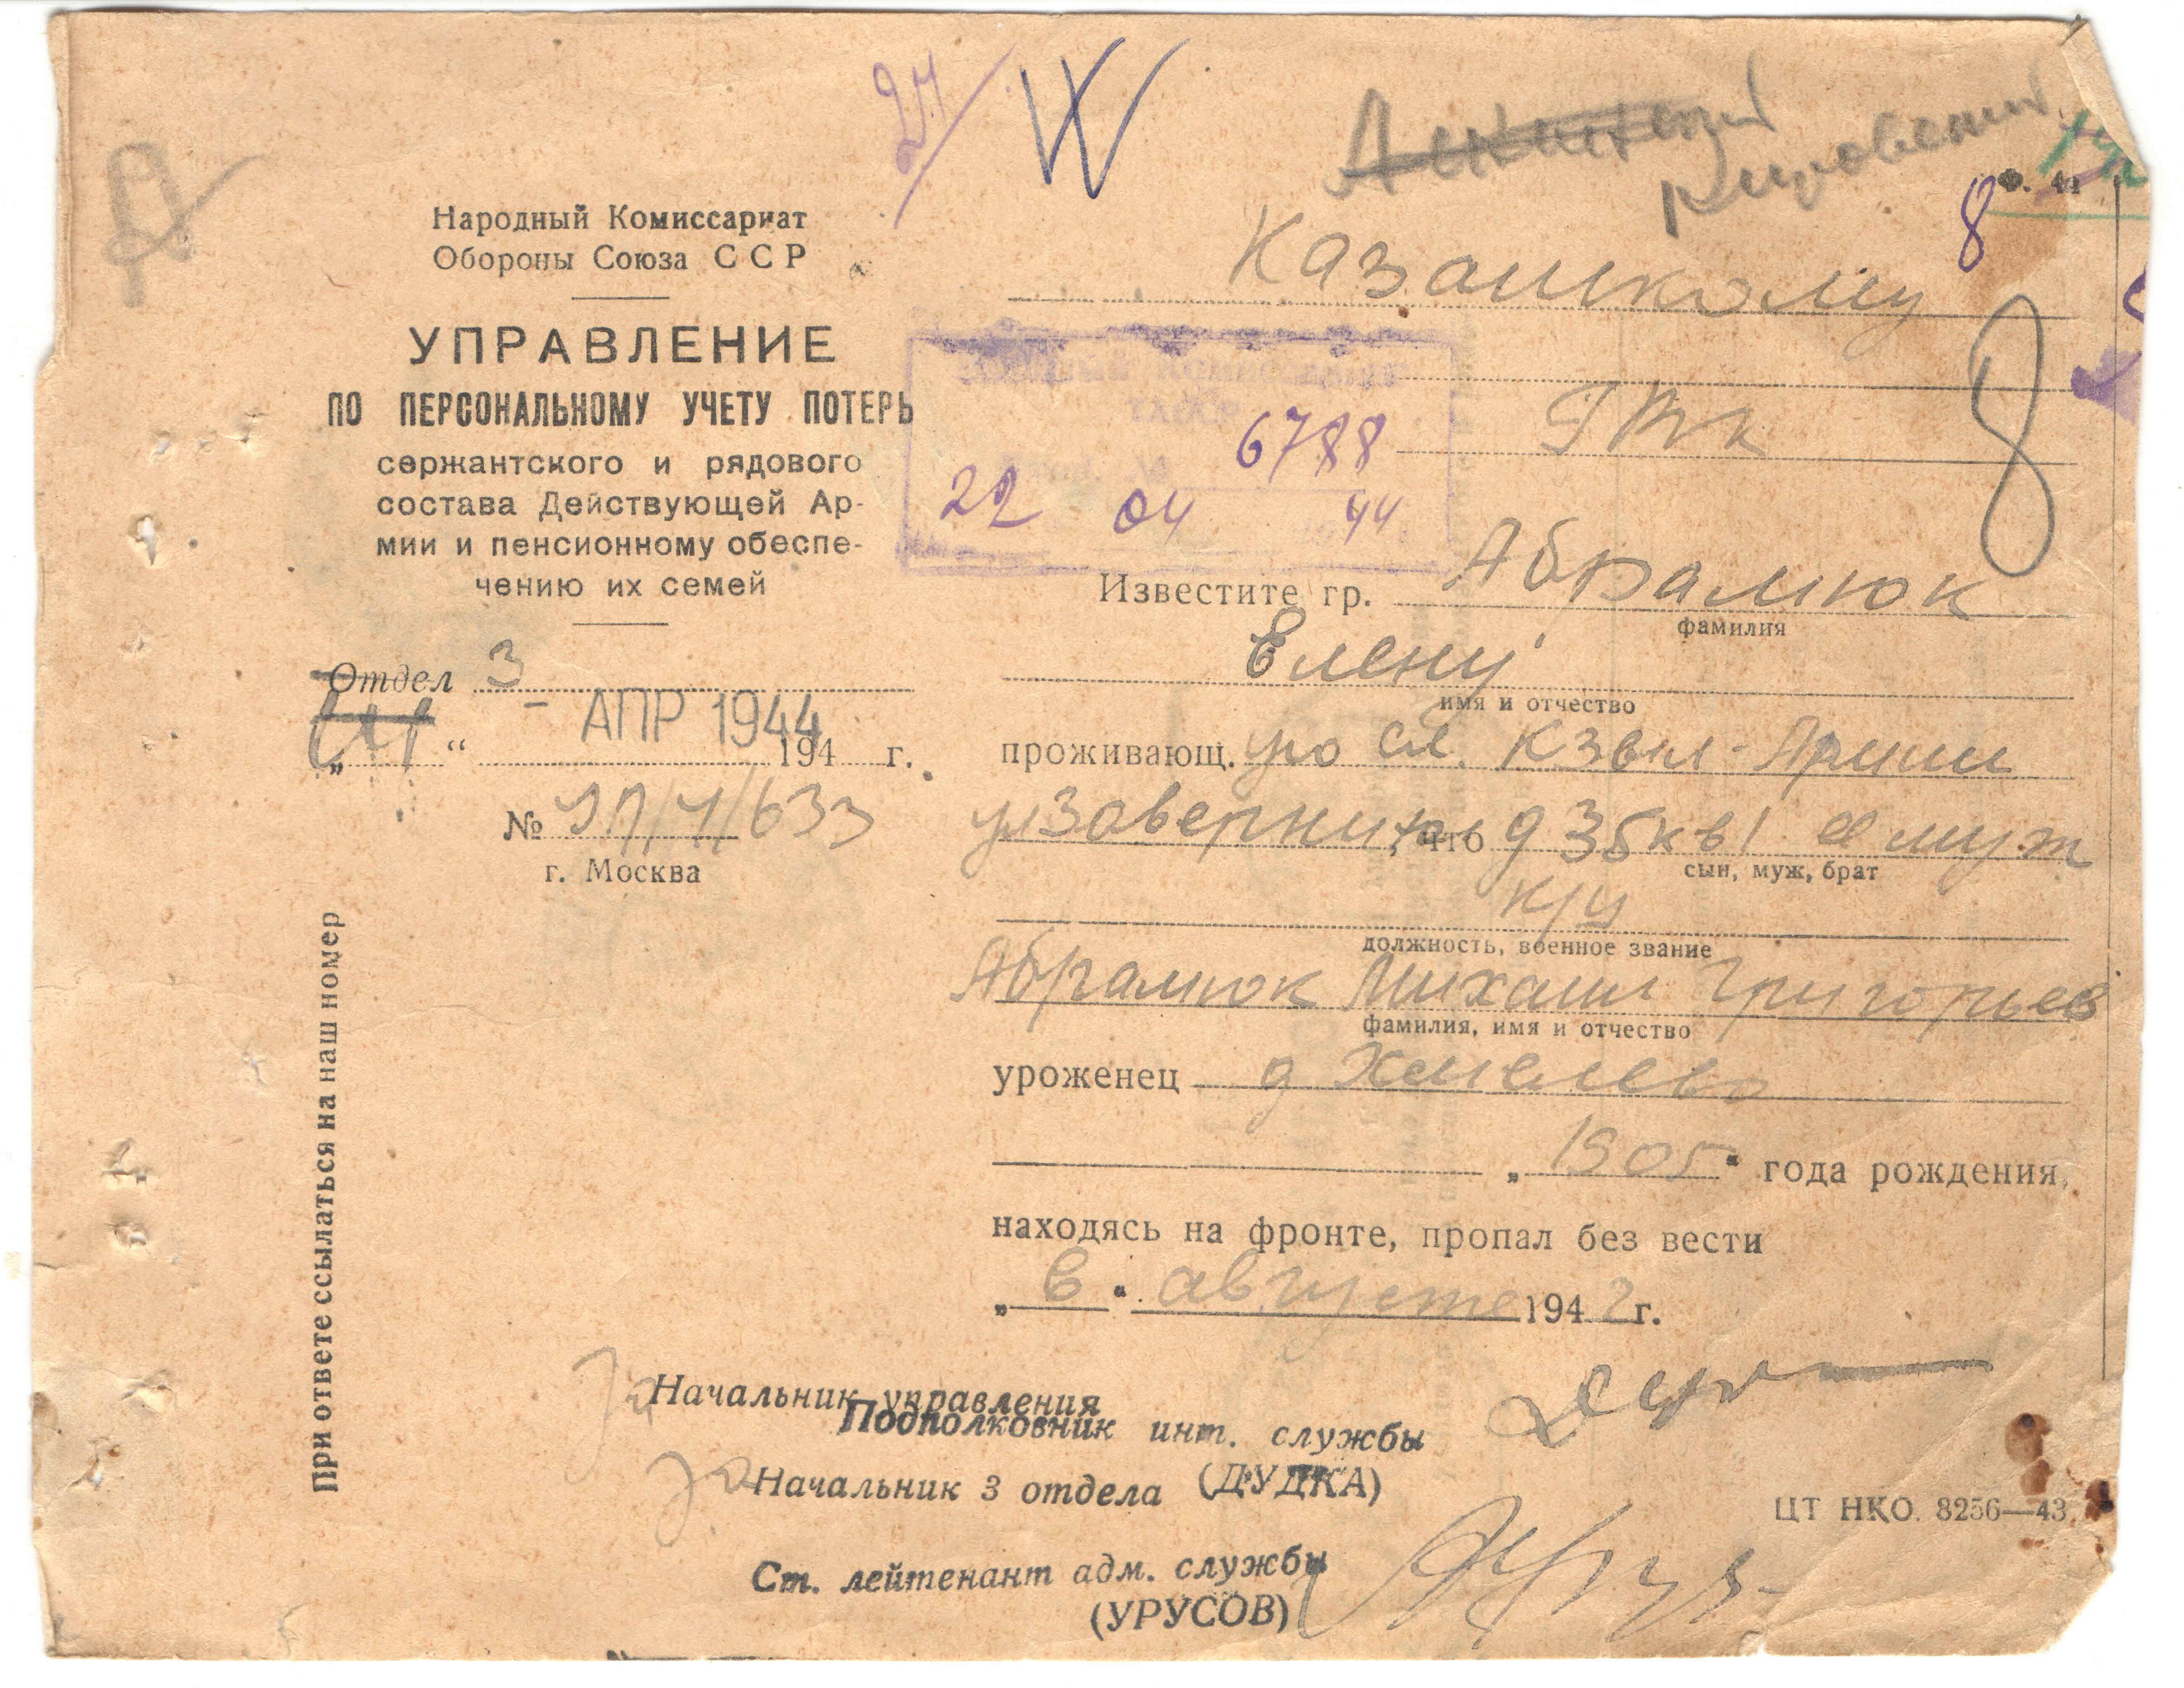 24/
Кировский
Ф. 4а
8
Народный Комиссариат
Обороны Союза ССР
УПРАВЛЕНИЕ
ПО ПЕРСОНАЛЬНОМУ УЧЕТУ ПОТЕРЬ
сержантского и рядового
состава Действующей Ар-
мии и пенсионному обеспе-
чению их семей
Отдел 3
„ “ - АПР 1944 194 г.
№ /633
г. Москва
При ответе ссылаться на наш номер
Казанскому
ГВК
8
6788
22 04 44
Известите гр. Абрамюк
фамилия
Елену
имя и отчество
проживающ. по ул. Армии
, что д 35 кв 1 ее муж
сын, муж, брат
к/ц
должность, военное звание
Абрамюк Михаил Григорьев
фамилия, имя и отчество
уроженец д Хмелево
„ 1905 “ года рождения,
находясь на фронте, пропал без вести
„ в “ августе 1942 г.
За Начальник управления
Подполковник инт. службы
За Начальник 3 отдела (ДУДКА)
Ст. лейтенант адм. службы
(УРУСОВ)
ЦТ НКО. 8256—43.